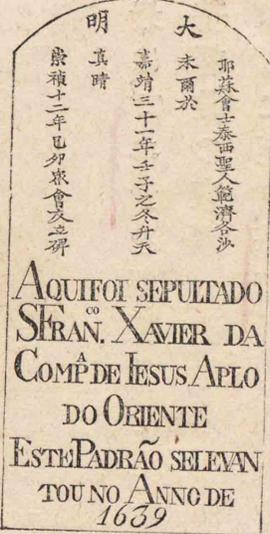 大明
耶蘇會士泰西聖人範濟各沙
未爾於
嘉靖三十一年壬子之冬升天
真晴
崇禎十二年已卯衆會友立碑
AQUIFOI SEPULTADO
SFRANᶜᵒ. XAVIER DA
COMPᴬ DE IESUS APLO
DO ORIENTE
ESTE PADRÃO SELEVAN
TOU NO ANNO DE
1639